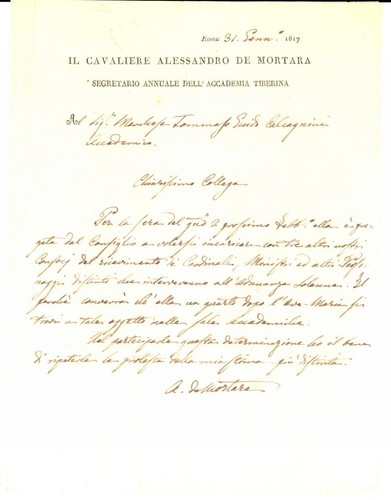 Roma 31. Genn.º 1817
IL CAVALIERE ALESSANDRO DE MORTARA
SEGRETARIO ANNUALE DELL'ACCADEMIA TIBERINA
Al Sig.r Marchese Tommaso Guido Calcagnini
Accademico.
Chiarissimo Collega
Per la sera del 2 prossimo Febb.º ella è pre-
gata dal Consiglio a volersi incaricare con tre altri nostri
del ricevimento de' Cardinali, Ministri ed altri Perso-
naggi distinti che interverranno all' Adunanza solenne. Il
perchè converrà ch'ella un quarto dopo l'Ave Maria si
trovi a tale oggetto nella sala Accademica.
Nel parteciparle questa determinazione ho il bene
di ripeterle la protesta della mia stima più distinta.
A. de Mortara